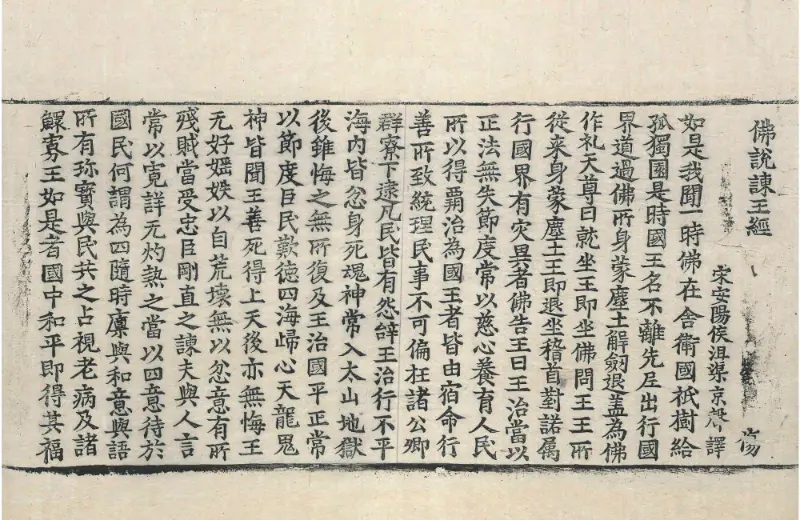 佛說諫王經
宋安陽侯沮渠京聲譯
如是我聞一時佛在舍衛國祇樹給
孤獨園是時國王名不離先尼出行國
界道過佛所身蒙塵土解劒退盖為佛
作礼天尊曰就坐王即坐佛問王王所
從来身蒙塵土王即退坐稽首對諾屬
行國界有灾異者佛告王曰王治當以
正法無失節度常以慈心養育人民
所以得覇治為國王者皆由宿命行
善所致統理民事不可偏枉諸公卿
群寮下逮凡民皆有怨辝王治行不平
海内皆忿身死魂神常入太山地獄
後雖悔之無所復及王治國平正常
以節度臣民歎徳四海歸心天龍鬼
神皆聞王善死得上天後亦無悔王
无好婬妷以自荒壊無以忿意有所
殘賊當受忠臣剛直之諫夫與人言
常以寛詳无灼熱之當以四意待於
國民何謂為四隨時廩與和意與語
所有珎寳與民共之占視老病及諸
鰥寡王如是者國中和平即得其福